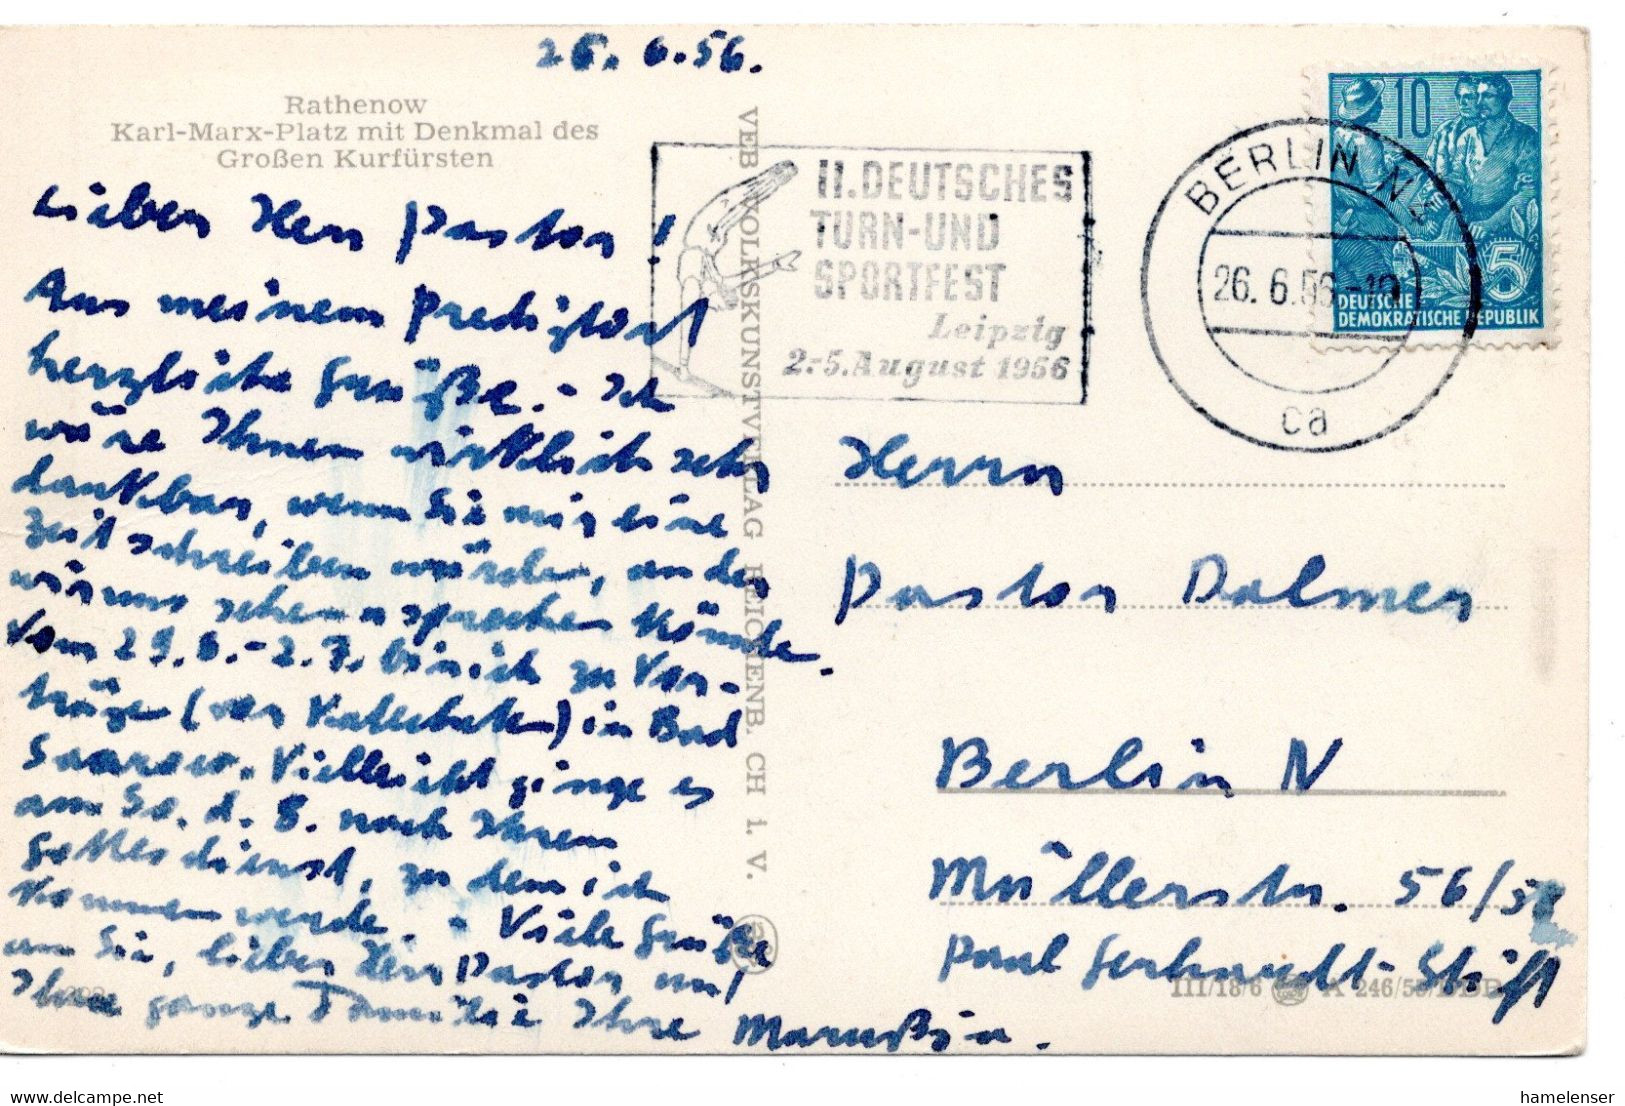 26. 6. 56.
Rathenow
Karl-Marx-Platz mit Denkmal des
Großen Kurfürsten
Lieber Herr Pastor!
Aus meinem Predigtort
herzliche Grüße. - Ich
wäre Ihnen wirklich sehr
dankbar, wenn Sie mir eine
Zeit schreiben würden, an der
wir uns sehen u sprechen könnten.
Vom 29.6.-2.7. bin ich zu Vor-
träge (vor Katecheten) in Bad
Saarow. Vielleicht ginge es
am So. d. 8. nach Ihrem
Gottesdienst, zu dem ich
kommen werde. - Viele Grüße
an Sie, lieber Herr Pastor und
Ihre ganze Familie Ihre
VEB VOLKSKUNSTVERLAG REICHENB. CH I. V.
II. DEUTSCHES
TURN-UND
SPORTFEST
Leipzig
2.-5. August 1956
BERLIN N
26. 6. 56.-19
ca
10
5
DEUTSCHE
DEMOKRATISCHE REPUBLIK
Herrn
Pastor Dalmer
Berlin N
Müllerstr. 56/58
Paul Gerhardt-Stift
III/18/6 A 246/55/DDR
delcampe.net
hamelenser